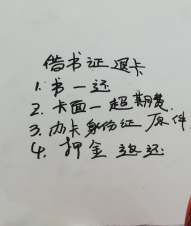 借书证退卡
1. 书一还
2. 卡面一超期费.
3. 办卡身份证原件
4. 押金退还